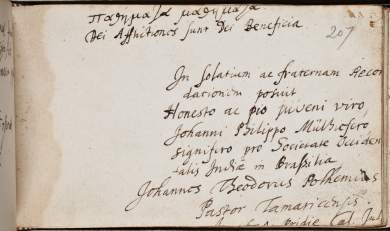 παθήματα μαθήματα
Dei Afflictiones sunt Dei Beneficia
207
In solatium ac fraternam Recor
dationem posuit
Honesto ac pio juveni viro
Johanni Philippo Mülhefero
signifero pro Societate Occiden
talis Indiæ in Brasilia
Johannes Theodorus Polhemius
Pastor Tamaricensis.
pridie Cal Jul